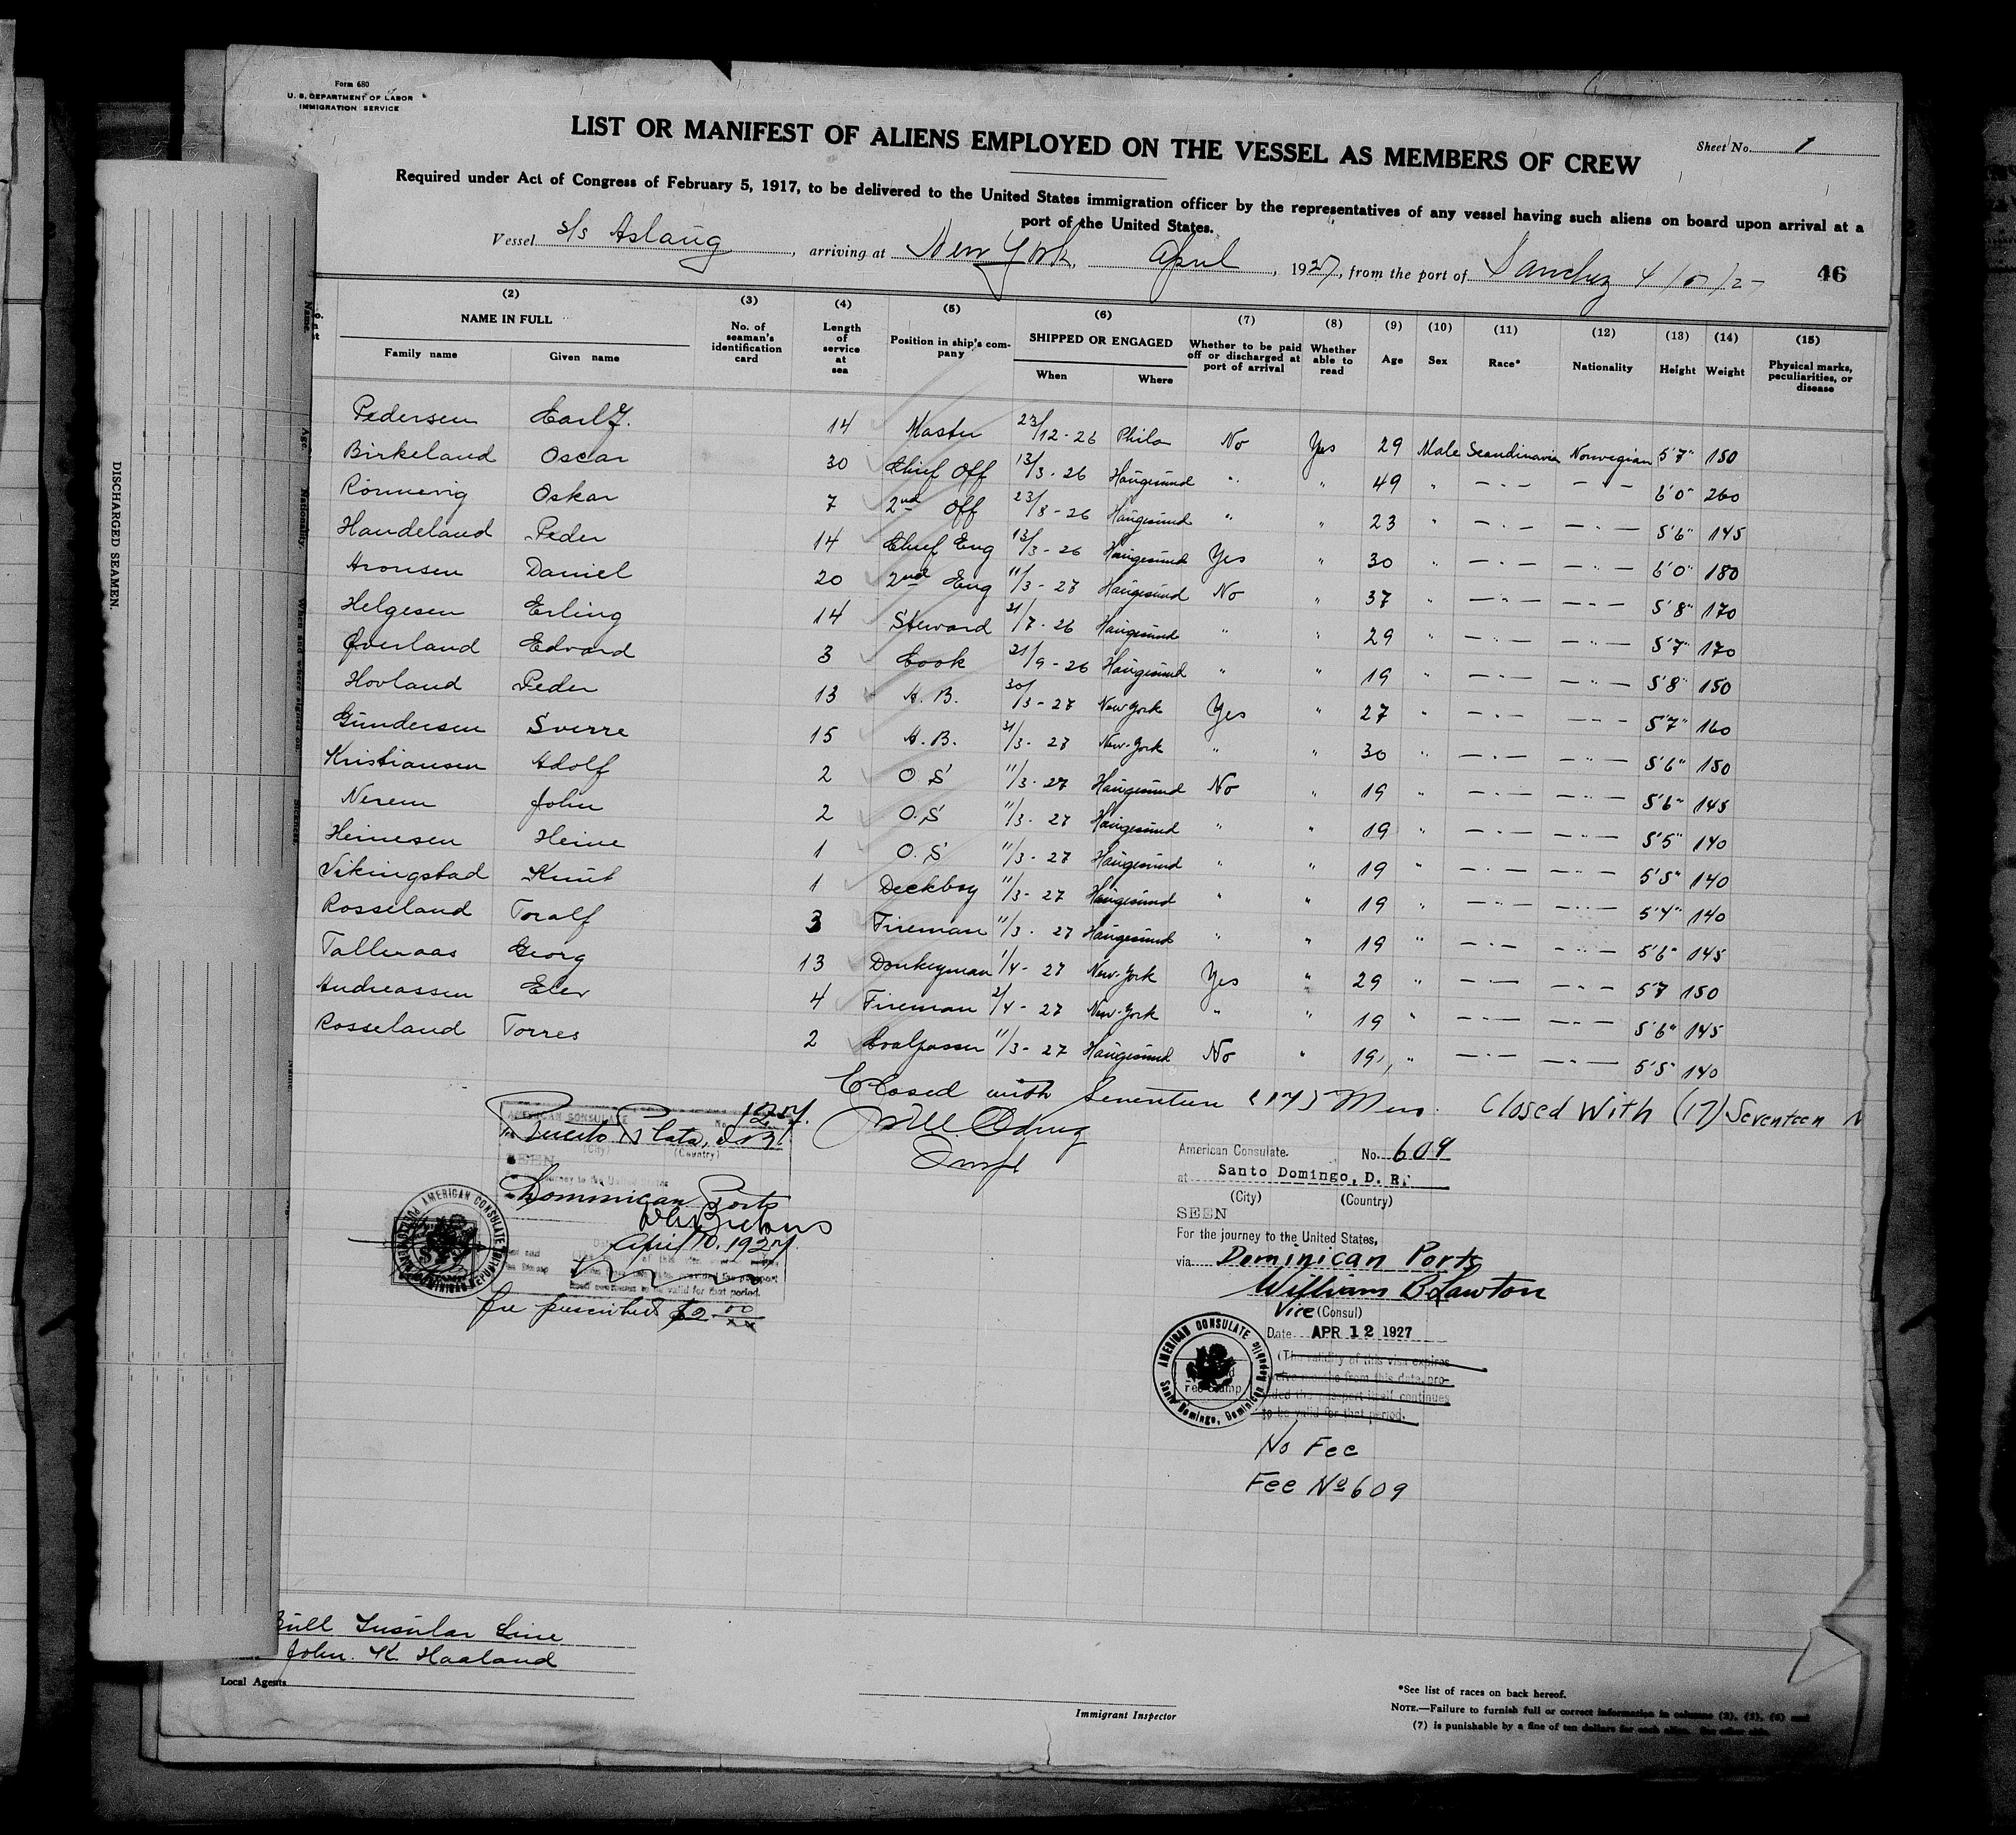 Form 680
U. S. DEPARTMENT OF LABOR
IMMIGRATION SERVICE
LIST OR MANIFEST OF ALIENS EMPLOYED ON THE VESSEL AS MEMBERS OF CREW
Sheet No. 1
Required under Act of Congress of February 5, 1917, to be delivered to the United States immigration officer by the representatives of any vessel having such aliens on board upon arrival at a
port of the United States.
Vessel S/S Aslaug, arriving at New York, April, 1927, from the port of Sanchez
46
(2) (3) (4) (5) (6) (7) (8) (9) (10) (11) (12) (13) (14) (15)
NAME IN FULL
Family name Given name
No. of seaman's identification card
Length of service at sea
Position in ship's company
SHIPPED OR ENGAGED
When Where
Whether to be paid off or discharged at port of arrival
Whether able to read
Age
Sex
Race*
Nationality
Height
Weight
Physical marks, peculiarities, or disease
Pedersen Carl J. 14 Master 23/12-26 Phila No Yes 29 Male Scandinavia Norwegian 5'7" 150
Birkeland Oscar 30 Chief Off 13/3-26 Haugesund " " 49 " -"- -"- 6'0" 260
Rönnevig Oskar 7 2nd Off 23/8-26 Haugesund " " 23 " -"- -"- 5'6" 145
Handeland Peder 14 Chief Eng 13/3-26 Haugesund Yes " 30 " -"- -"- 6'0" 180
Aronsen Daniel 20 2nd Eng 11/3-27 Haugesund No " 37 " -"- -"- 5'8" 170
Helgesen Erling 14 Steward 31/7-26 Haugesund " " 29 " -"- -"- 5'7" 170
Øverland Edvard 3 Cook 21/9-26 Haugesund " " 19 " -"- -"- 5'8" 150
Hovland Peder 13 A.B. 30/3-27 New York Yes " 27 " -"- -"- 5'7" 160
Gundersen Sverre 15 A.B. 31/3-27 New-York " " 30 " -"- -"- 5'6" 150
Kristiansen Adolf 2 O S 11/3-27 Haugesund No " 19 " -"- -"- 5'6" 145
Nerem John 2 O.S 11/3-27 Haugesund " " 19 " -"- -"- 5'5" 140
Heinesen Heine 1 O.S 11/3-27 Haugesund " " 19 " -"- -"- 5'5" 140
Vikingstad Knut 1 Deckboy 11/3-27 Haugesund " " 19 " -"- -"- 5'4" 140
Rosseland Toralf 3 Fireman 11/3-27 Haugesund " " 19 " -"- -"- 5'6" 145
Talleraas Georg 13 Donkeyman 1/4-27 New-York Yes " 29 " -"- -"- 5'7 150
Andreassen Elev 4 Fireman 2/4-27 New-York " " 19 " -"- -"- 5'6" 145
Rosseland Torres 2 Coalpasser 11/3-27 Haugesund No " 19 " -"- -"- 5'5" 140
Closed with Seventeen (17) Men. Closed With (17) Seventeen
AMERICAN CONSULATE No.
Puerto Plata, D.R.
(City) (Country)
SEEN
Dominican Ports
April 10, 1927
fee prescribed $2.00
AMERICAN CONSULATE
American Consulate. No. 609
at Santo Domingo, D. R.
(City) (Country)
SEEN
For the journey to the United States,
via Dominican Ports
William B Lawton
Vice (Consul)
Date APR 12 1927
(The validity of this visa expires
from this date, pro-
vided the passport itself continues
to be valid for that period.
AMERICAN CONSULATE
Santo Domingo, Dominican Republic
No Fee
Fee No 609
Bull Insular Line
John. K Haaland
Local Agents
Immigrant Inspector
*See list of races on back hereof.
NOTE.—Failure to furnish full or correct information in columns (2), (5), (6) and
(7) is punishable by a fine of ten dollars for each alien. See other side.
DISCHARGED SEAMEN.
Name
Age
Nationality.
When and where signed on.